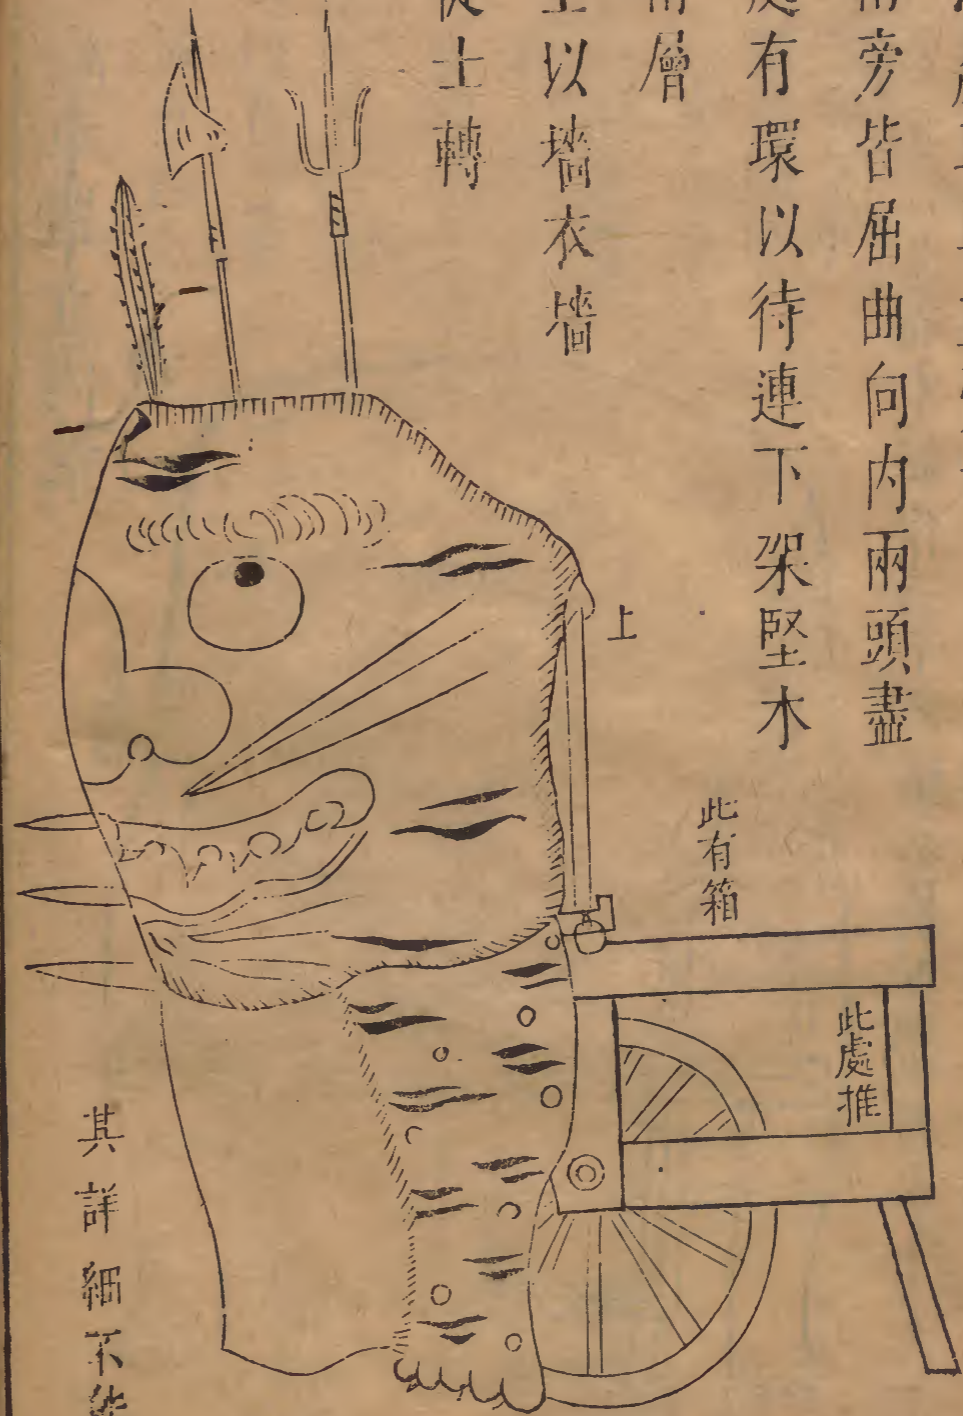 旁皆屈曲向内兩頭盡
有環以待連下架堅木
層
以墻衣墻
士轉
上
此有箱
此處推
其詳細不